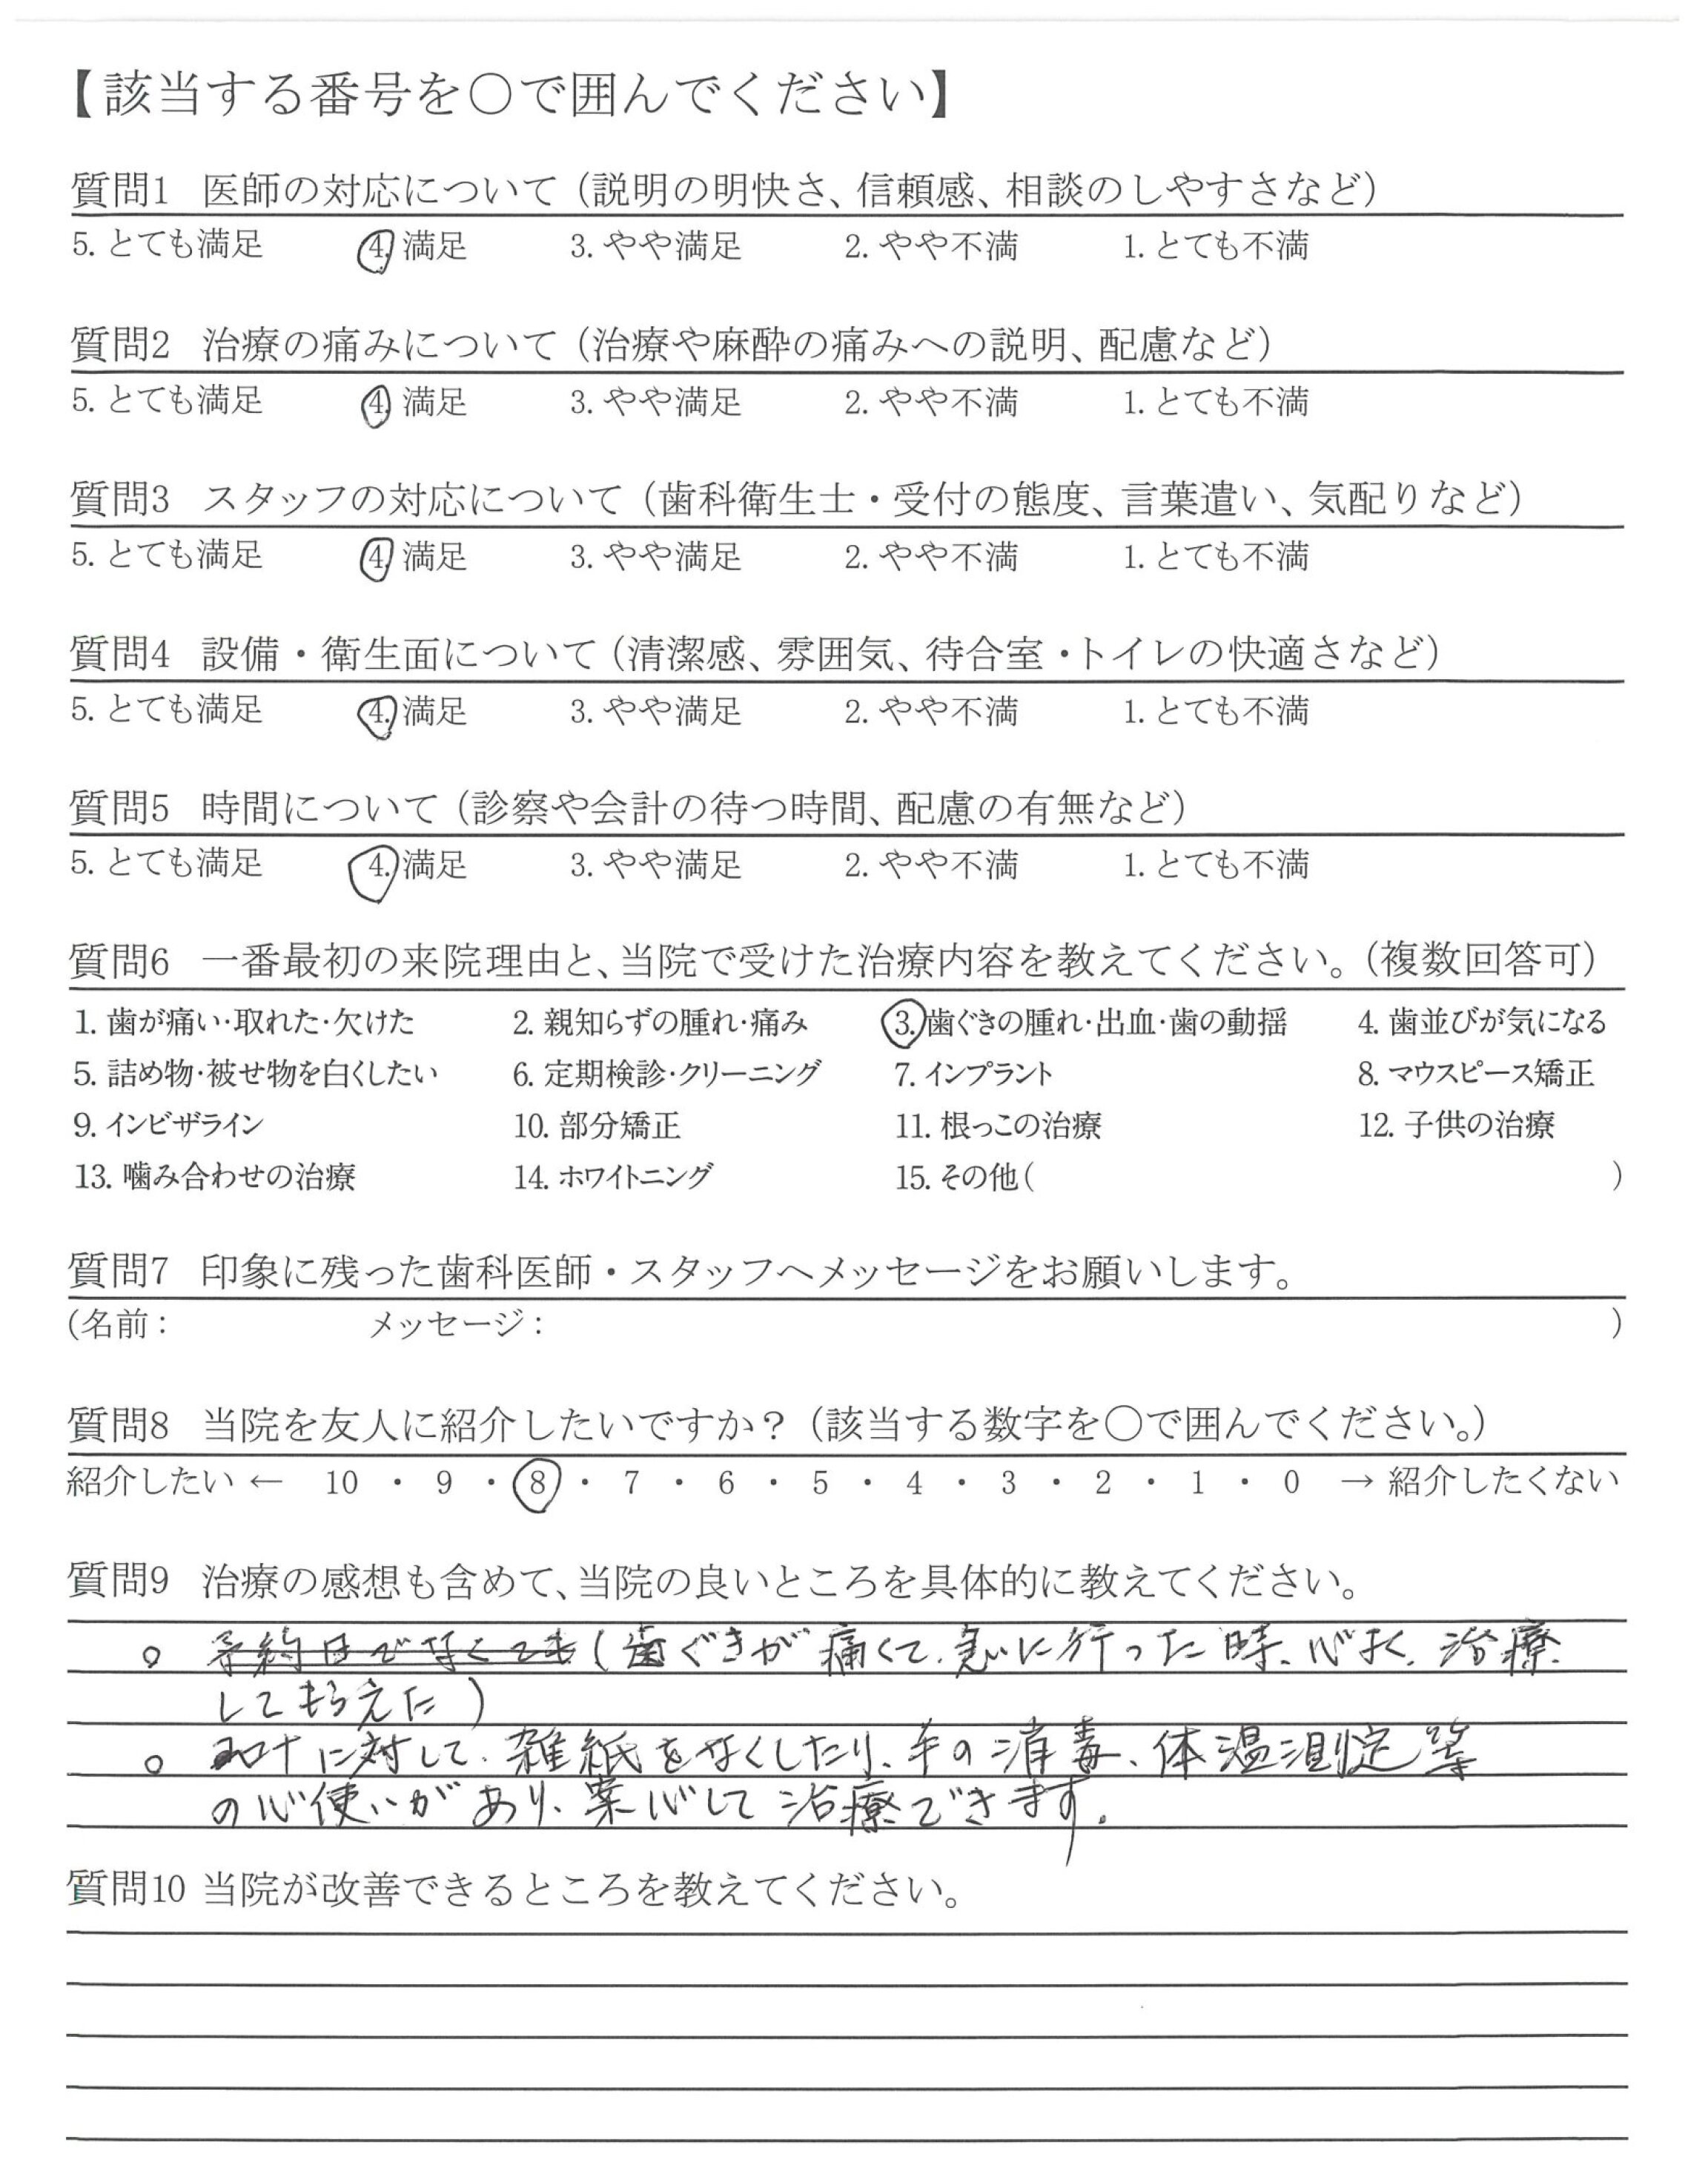 【該当する番号を○で囲んでください】
質問1 医師の対応について（説明の明快さ、信頼感、相談のしやすさなど）
5. とても満足 4. 満足 3. やや満足 2. やや不満 1. とても不満
質問2 治療の痛みについて（治療や麻酔の痛みへの説明、配慮など）
5. とても満足 4. 満足 3. やや満足 2. やや不満 1. とても不満
質問3 スタッフの対応について（歯科衛生士・受付の態度、言葉遣い、気配りなど）
5. とても満足 4. 満足 3. やや満足 2. やや不満 1. とても不満
質問4 設備・衛生面について（清潔感、雰囲気、待合室・トイレの快適さなど）
5. とても満足 4. 満足 3. やや満足 2. やや不満 1. とても不満
質問5 時間について（診察や会計の待つ時間、配慮の有無など）
5. とても満足 4. 満足 3. やや満足 2. やや不満 1. とても不満
質問6 一番最初の来院理由と、当院で受けた治療内容を教えてください。（複数回答可）
1. 歯が痛い・取れた・欠けた 2. 親知らずの腫れ・痛み 3. 歯ぐきの腫れ・出血・歯の動揺 4. 歯並びが気になる
5. 詰め物・被せ物を白くしたい 6. 定期検診・クリーニング 7. インプラント 8. マウスピース矯正
9. インビザライン 10. 部分矯正 11. 根っこの治療 12. 子供の治療
13. 噛み合わせの治療 14. ホワイトニング 15. その他（ ）
質問7 印象に残った歯科医師・スタッフへメッセージをお願いします。
（名前： メッセージ： ）
質問8 当院を友人に紹介したいですか？（該当する数字を○で囲んでください。）
紹介したい ← 10 ・ 9 ・ 8 ・ 7 ・ 6 ・ 5 ・ 4 ・ 3 ・ 2 ・ 1 ・ 0 → 紹介したくない
質問9 治療の感想も含めて、当院の良いところを具体的に教えてください。
○ 予約日でなくても（歯ぐきが痛くて、急に行った時、心よく、治療
してもらえた）
○ に対して、雑紙をなくしたり、手の消毒、体温測定等
の心使いがあり、案心して治療できます。
質問10 当院が改善できるところを教えてください。